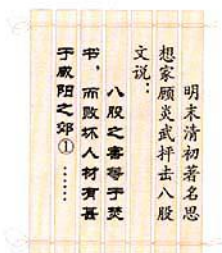 明末清初著名思
想家顾炎武抨击八股
文说：
八股之害等于焚
书，而败坏人材有甚
于咸阳之郊①……